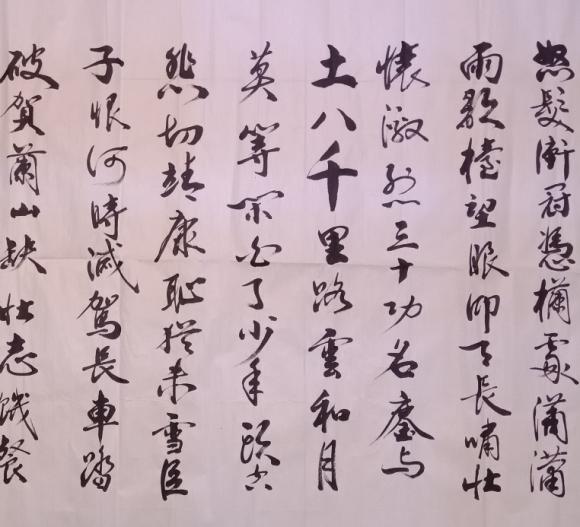 怒髮衝冠憑欄處瀟瀟
雨歇擡望眼仰天長嘯壯
懷激烈三十功名塵與
土八千里路雲和月
莫等閑白了少年頭空
悲切靖康恥猶未雪臣
子恨何時滅駕長車踏
破賀蘭山缺壯志饑餐